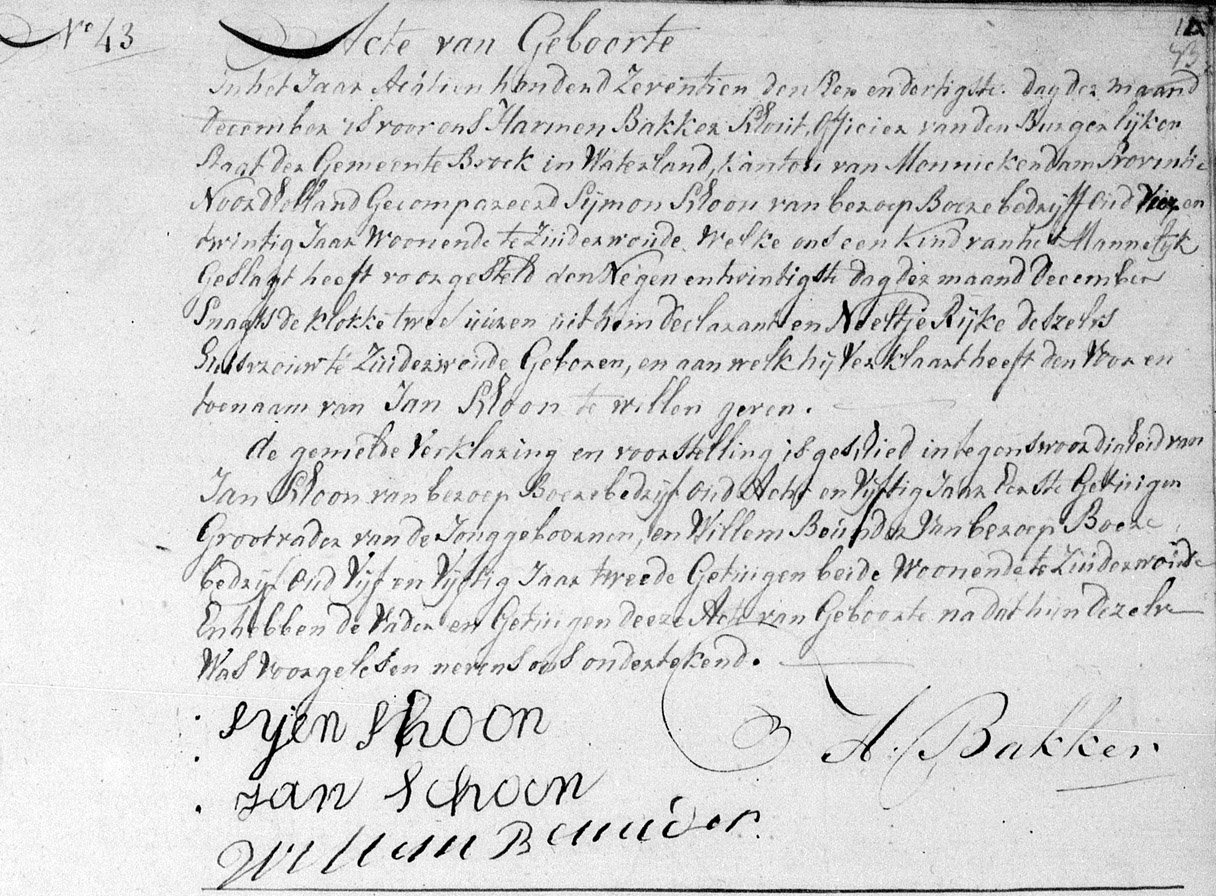 N° 43
Acte van Geboorte
In het Jaar Achtien honderd Zeventien den Een en dertigste dag der maand
December is voor ons Harmen Bakker Schout, Officier van den Burgerlijken
Staat der Gemeente Broek in Waterland, kanton van Monnickendam Provintie
Noord Holland Gecompareerd Sijmon Schoon van beroep Boerebedrijff Oud Vier en
twintig Jaar Woonende te Zuiderwoude Welke ons een Kind van het Mannelijk
Geslagt heeft voorgesteld den Negen entwintigste dag der maand December
Snagts de klokke twee uuren uit hem declarant en Neeltje Rijke deszelvs
huisvrouw te Zuiderwoude Geboren, en aan welk hij Verklaart heeft den Voor en
toenaam van Jan Schoon te willen geven.
de gemelde Verklaring en voorstelling is geschied in tegenswoordigheid van
Jan Schoon van beroep Boerebedrijf Oud Acht en Vijftig Jaar Eerste Getuigen
Grootvader van de Jonggeboornen, en Willem Beunder Van beroep Boere
bedrijf Oud Vijf en Vijftig Jaar tweede Getuigen beide Woonende te Zuiderwoude
En hebben de Vader en Getuigen deeze Acte van Geboorte na dat hun dezelve
Was Voorgelesen nevens ons ondertekend.
Syen Schoon
H: Bakker
Jan Schoon
Willem Beunder